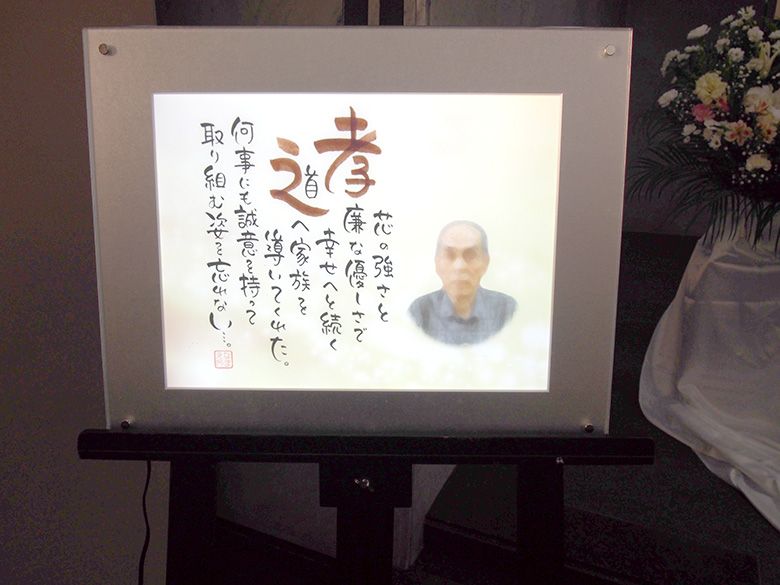 芯の強さと
孝廉な優しさで
幸せへと続く
道へ家族を
導いてくれた。
何事にも誠意を持って
取り組む姿を忘れない…。